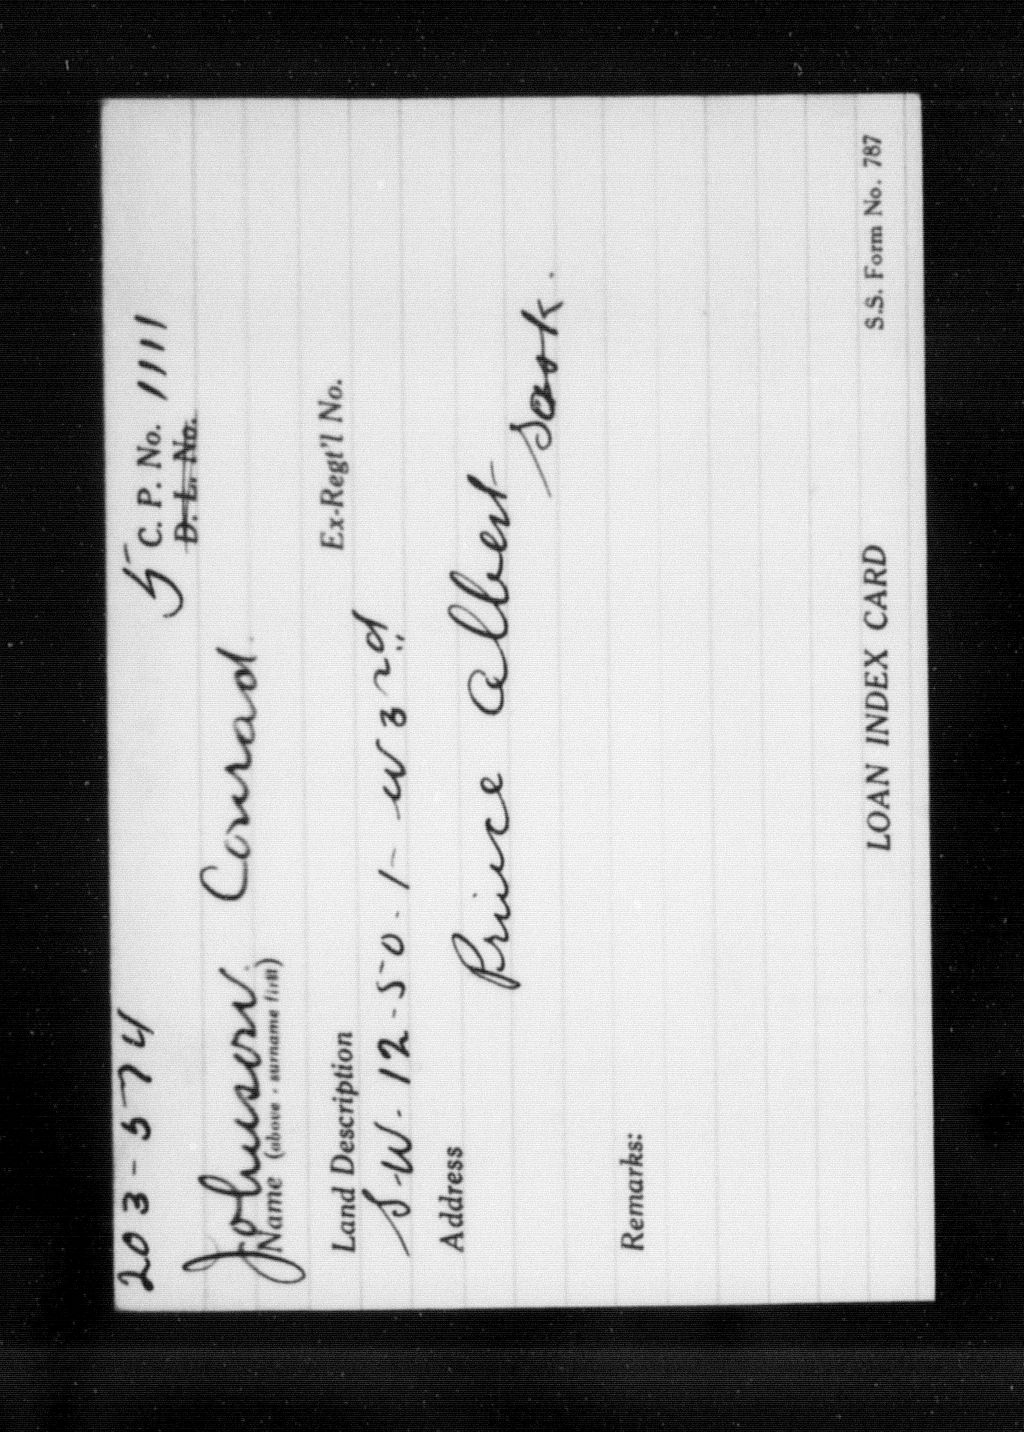 203-574
5 C. P. No. 1111
D. L. No.
Johnson. Conrad.
Name (above - surname first)
Land Description
Ex-Regt'l No.
S.W. 12-50.1- W 3rd
Address
Prince Albert
Sask.
Remarks:
LOAN INDEX CARD
S.S. Form No. 787